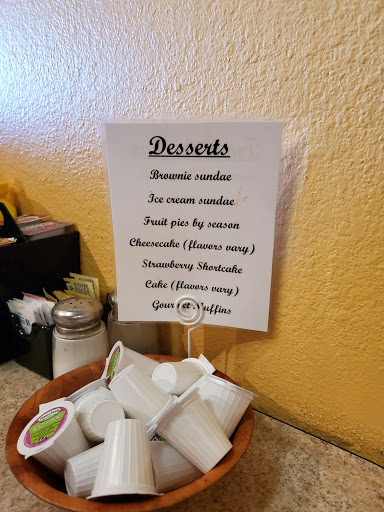 Desserts
Brownie sundae
Ice cream sundae
Fruit pies by season
Cheesecake (flavors vary)
Strawberry Shortcake
Cake (flavors vary)
Gourmet Muffins